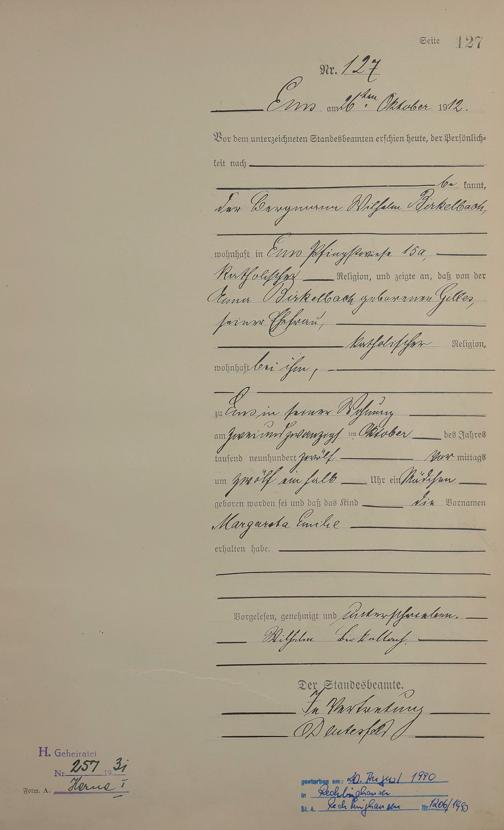 Seite 127
Nr. 127
Ems am 26ten Oktober 1912.
Vor dem unterzeichneten Standesbeamten erschien heute, der Persönlich-
keit nach
be kannt,
der Bergmann Wilhelm Birkelbach,
wohnhaft in Ems 15a,
katholischer Religion, und zeigte an, daß von der
Anna Birkelbach geborenen Gilles,
seiner Ehefrau,
katholischer Religion,
wohnhaft bei ihm,
zu Ems in seiner Wohnung
am zweiundzwanzigsten Oktober des Jahres
tausend neunhundert zwölf vor mittags
um zwölf ein halb Uhr ein Mädchen
geboren worden sei und daß das Kind die Vornamen
Margareta Emilie
erhalten habe.
Vorgelesen, genehmigt und unterschrieben.
Wilhelm Birkelbach
Der Standesbeamte.
In Vertretung
H. Geheiratet
Nr. 257 1931
Form. A. Herne I
gestorben am: 20. August 1980
in Recklinghausen
St. A. Recklinghausen Nr. 1206/1980